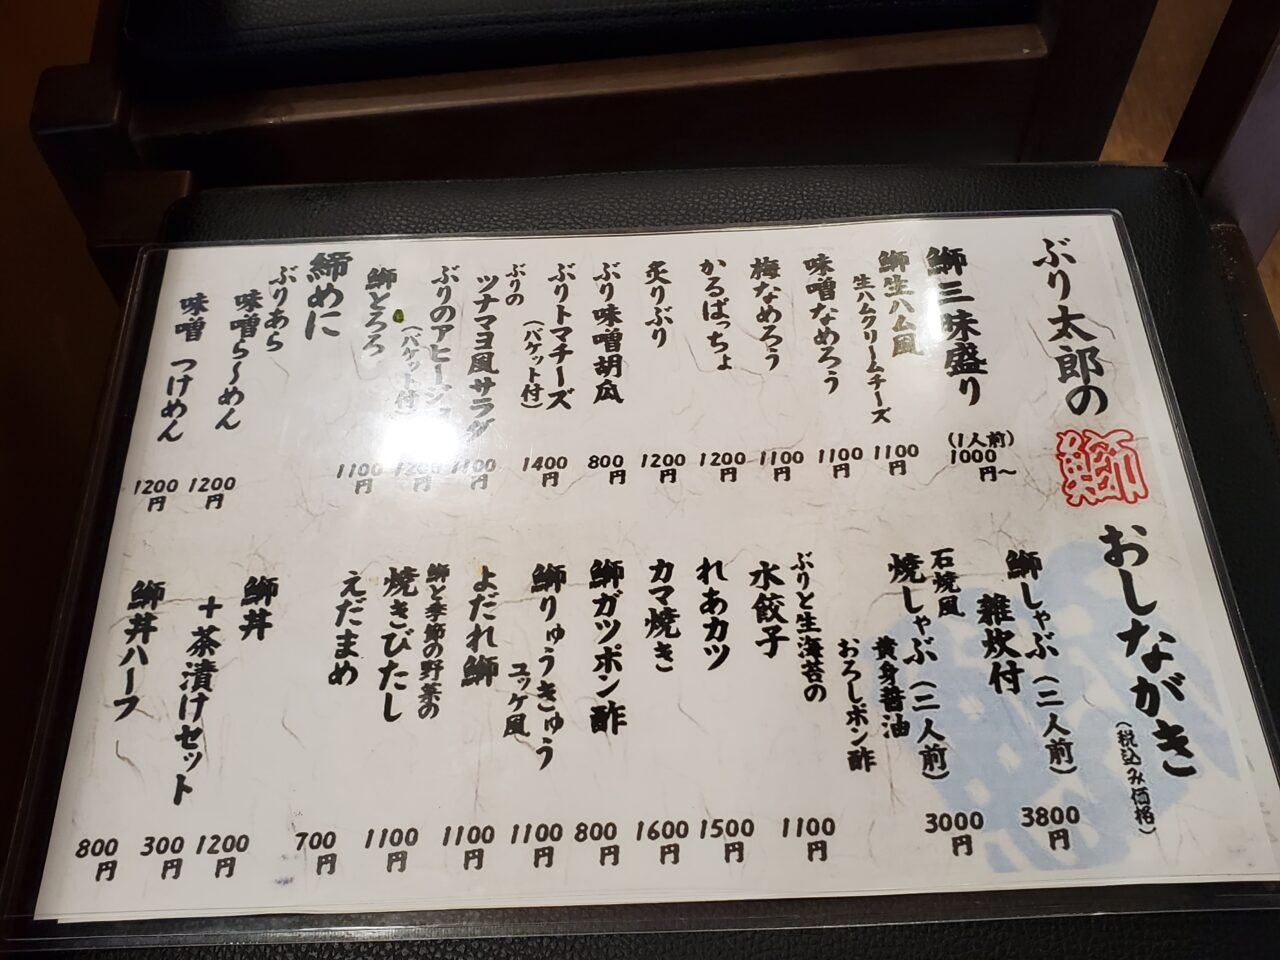 ぶり太郎の
鰤
おしながき
(税込み価格)
鰤三昧盛り
(1人前)
1000円〜
鰤生ハム風
生ハムクリームチーズ
1100円
味噌なめろう
1100円
梅なめろう
1100円
かるぱっちょ
1200円
炙りぶり
1200円
ぶり味噌胡瓜
800円
ぶりトマチーズ
(バケット付)
1400円
ぶりの
ツナマヨ風サラダ
1100円
ぶりのアヒージョ
(バケット付)
1200円
鰤とろろ
1100円
締めに
ぶりあら
味噌ら〜めん
1200円
味噌 つけめん
1200円
鰤しゃぶ(二人前)
雑炊付
3800円
石焼風
焼しゃぶ(二人前)
黄身醤油
おろしポン酢
3000円
ぶりと生海苔の
水餃子
1100円
れあカツ
1500円
カマ焼き
1600円
鰤ガツポン酢
800円
鰤りゅうきゅう
ユッケ風
1100円
よだれ鰤
1100円
鰤と季節の野菜の
焼きびたし
1100円
えだまめ
700円
鰤丼
1200円
+茶漬けセット
300円
鰤丼ハーフ
800円